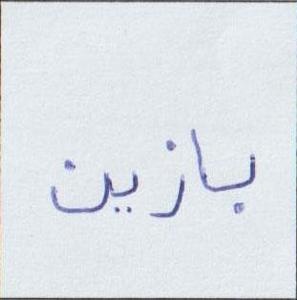 بازين